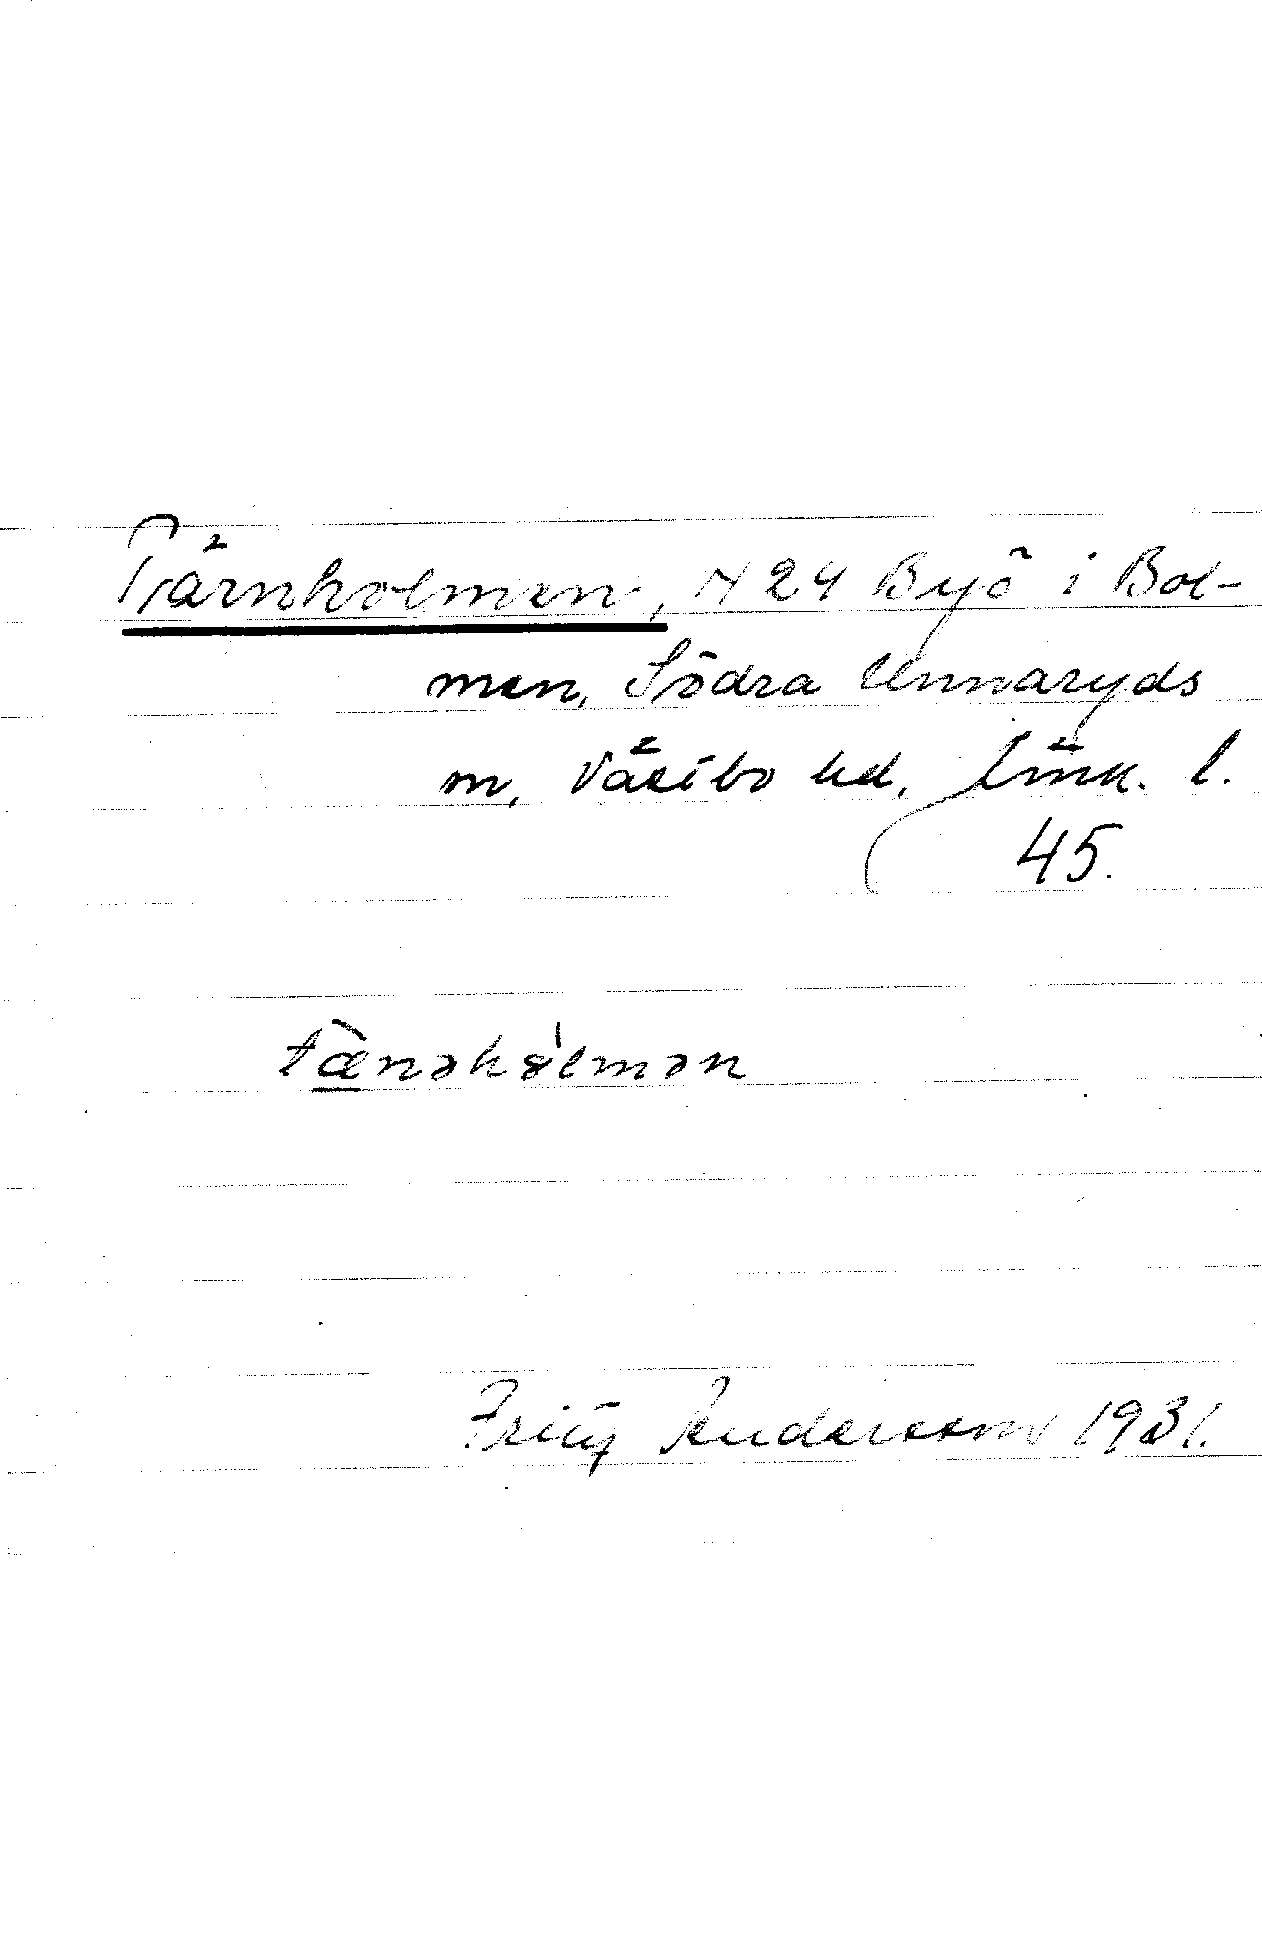 Tärnholmen, N 24 Byö i Bol-
men, Södra Unnaryds
sn, Västbo hd, Jönk. l.
45.
tænəhålmən
Fritz Andersson 1931.